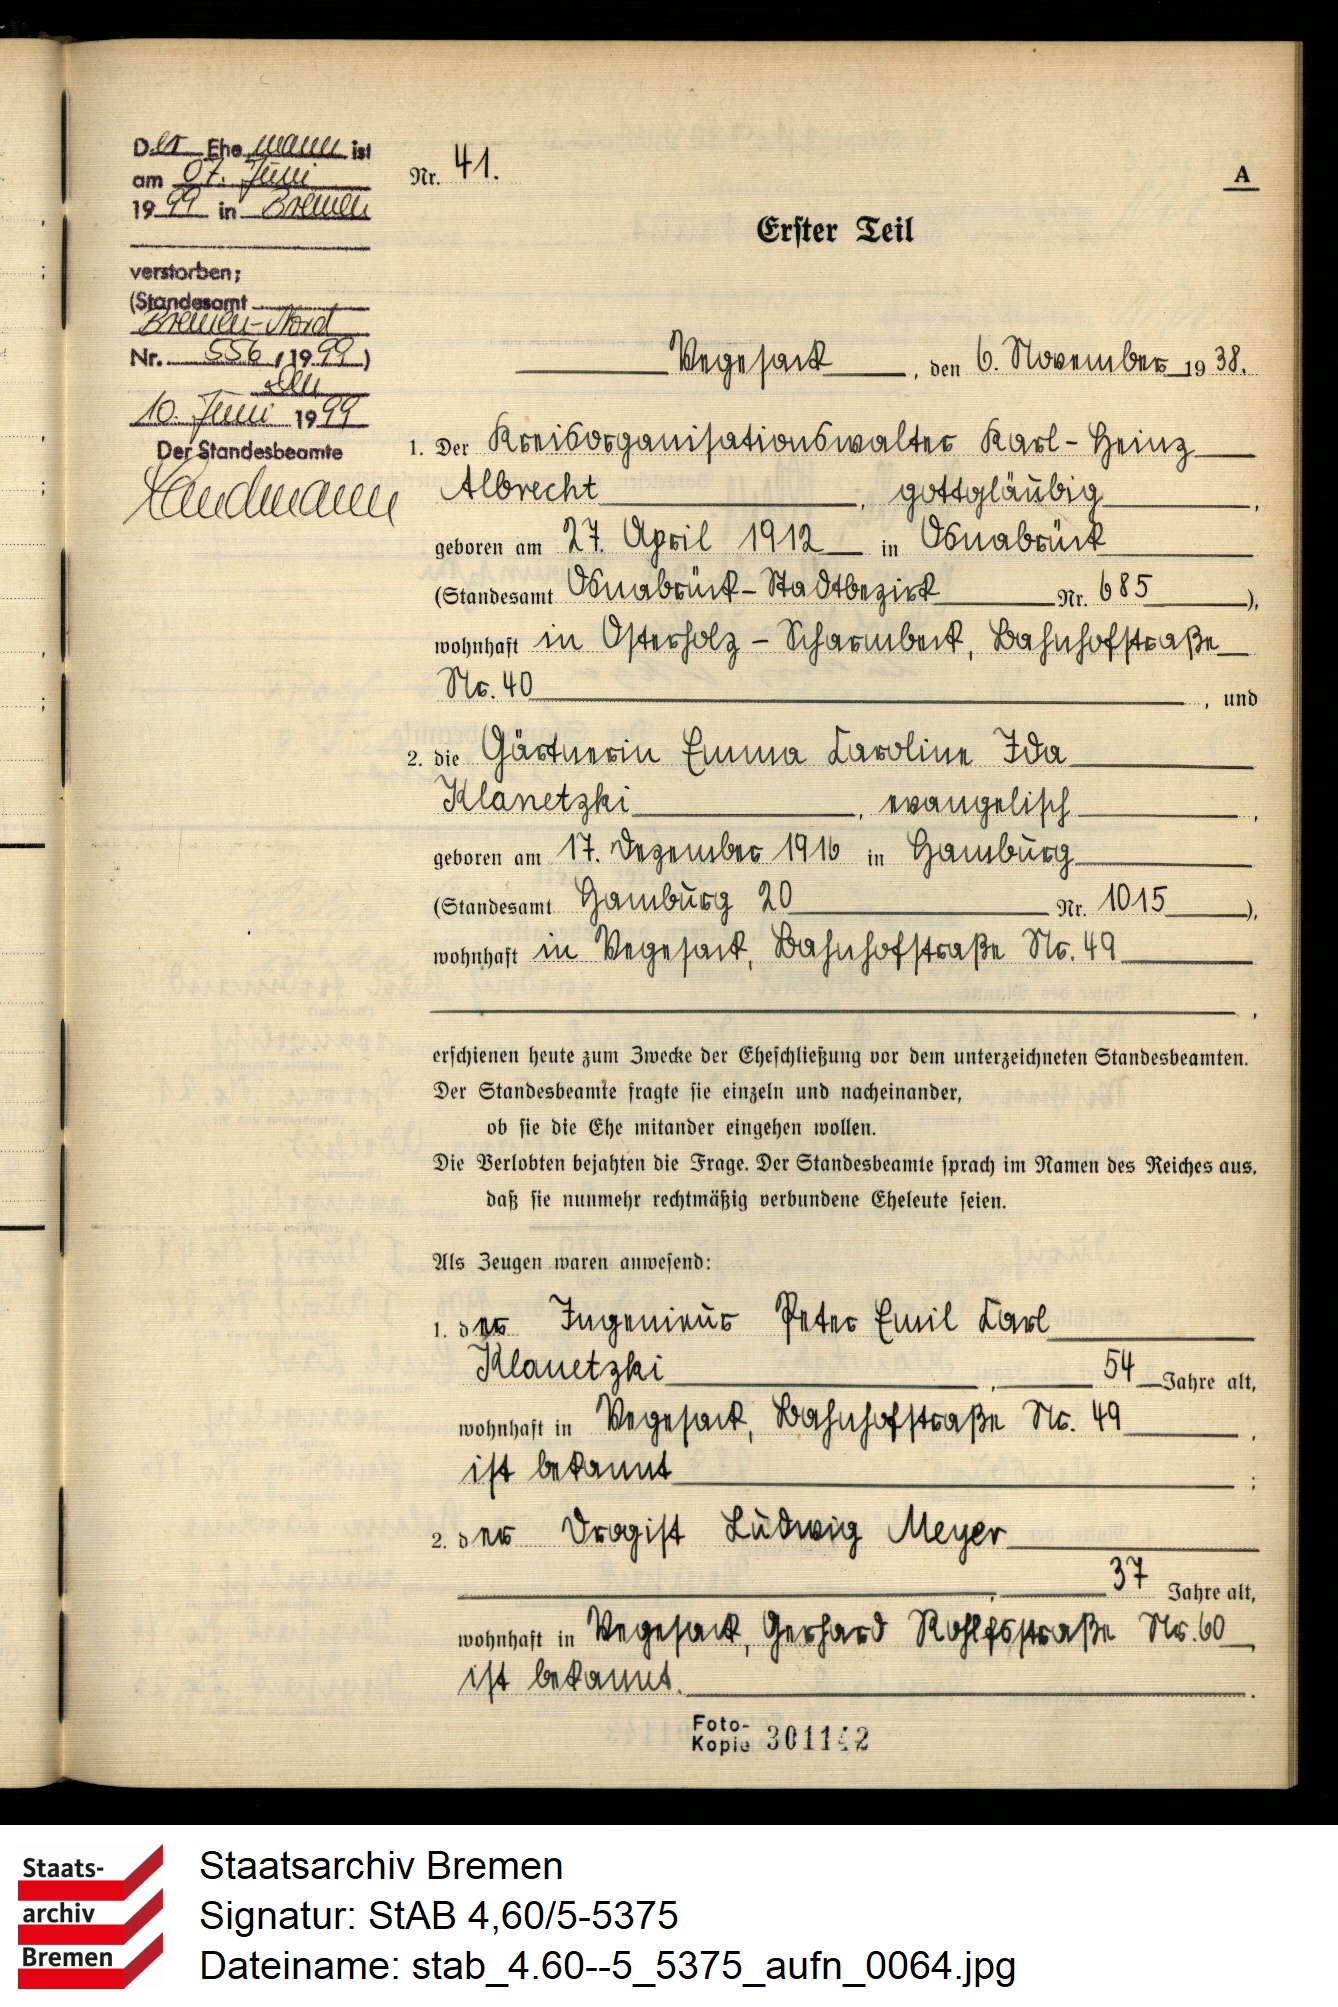 Der Ehe mann ist
am 07. Juni
1999 in Bremen
verstorben;
(Standesamt
Bremen-Nord
Nr. 556 / 1999)
den
10. Juni 1999
Der Standesbeamte
Nr. 41.
A
Erster Teil
Vegesack, den 6. November 1938.
1. Der Kreisorganisationswalter Karl-Heinz
Albrecht, gottgläubig,
geboren am 27. April 1912 in Osnabrück
(Standesamt Osnabrück-Stadtbezirk Nr. 685),
wohnhaft in Osterholz-Scharmbeck, Bahnhofstraße
Nr. 40, und
2. die Gärtnerin Emma Caroline Ida
Klanetzki, evangelisch,
geboren am 17. Dezember 1916 in Hamburg
(Standesamt Hamburg 20 Nr. 1015),
wohnhaft in Vegesack, Bahnhofstraße Nr. 49
,
erschienen heute zum Zwecke der Eheschließung vor dem unterzeichneten Standesbeamten.
Der Standesbeamte fragte sie einzeln und nacheinander,
ob sie die Ehe mitander eingehen wollen.
Die Verlobten bejahten die Frage. Der Standesbeamte sprach im Namen des Reiches aus,
daß sie nunmehr rechtmäßig verbundene Eheleute seien.
Als Zeugen waren anwesend:
1. der Ingenieur Peter Emil Carl
Klanetzki, 54 Jahre alt,
wohnhaft in Vegesack, Bahnhofstraße Nr. 49,
ist bekannt;
2. der Drogist Ludwig Meyer
, 37 Jahre alt,
wohnhaft in Vegesack, Gerhard Rohlfsstraße Nr. 60,
ist bekannt.
Foto-
Kopie 301142
Staats-
archiv
Bremen
Staatsarchiv Bremen
Signatur: StAB 4,60/5-5375
Dateiname: stab_4.60--5_5375_aufn_0064.jpg